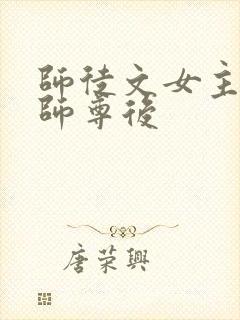 師徒文女主
師尊後
唐荣興